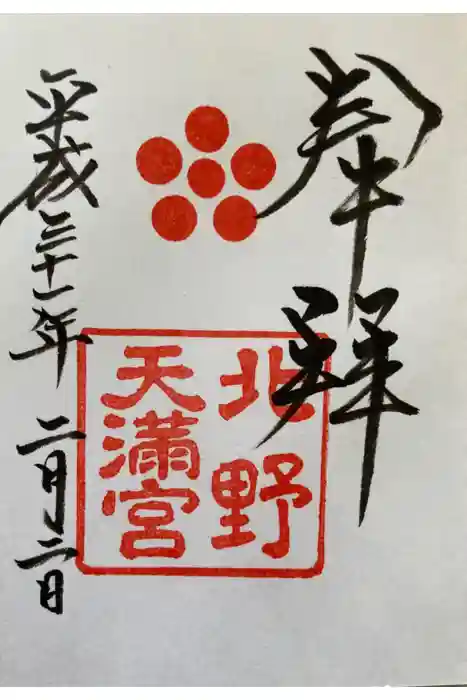 奉拝
北野
天満宮
平成三十一年二月二日